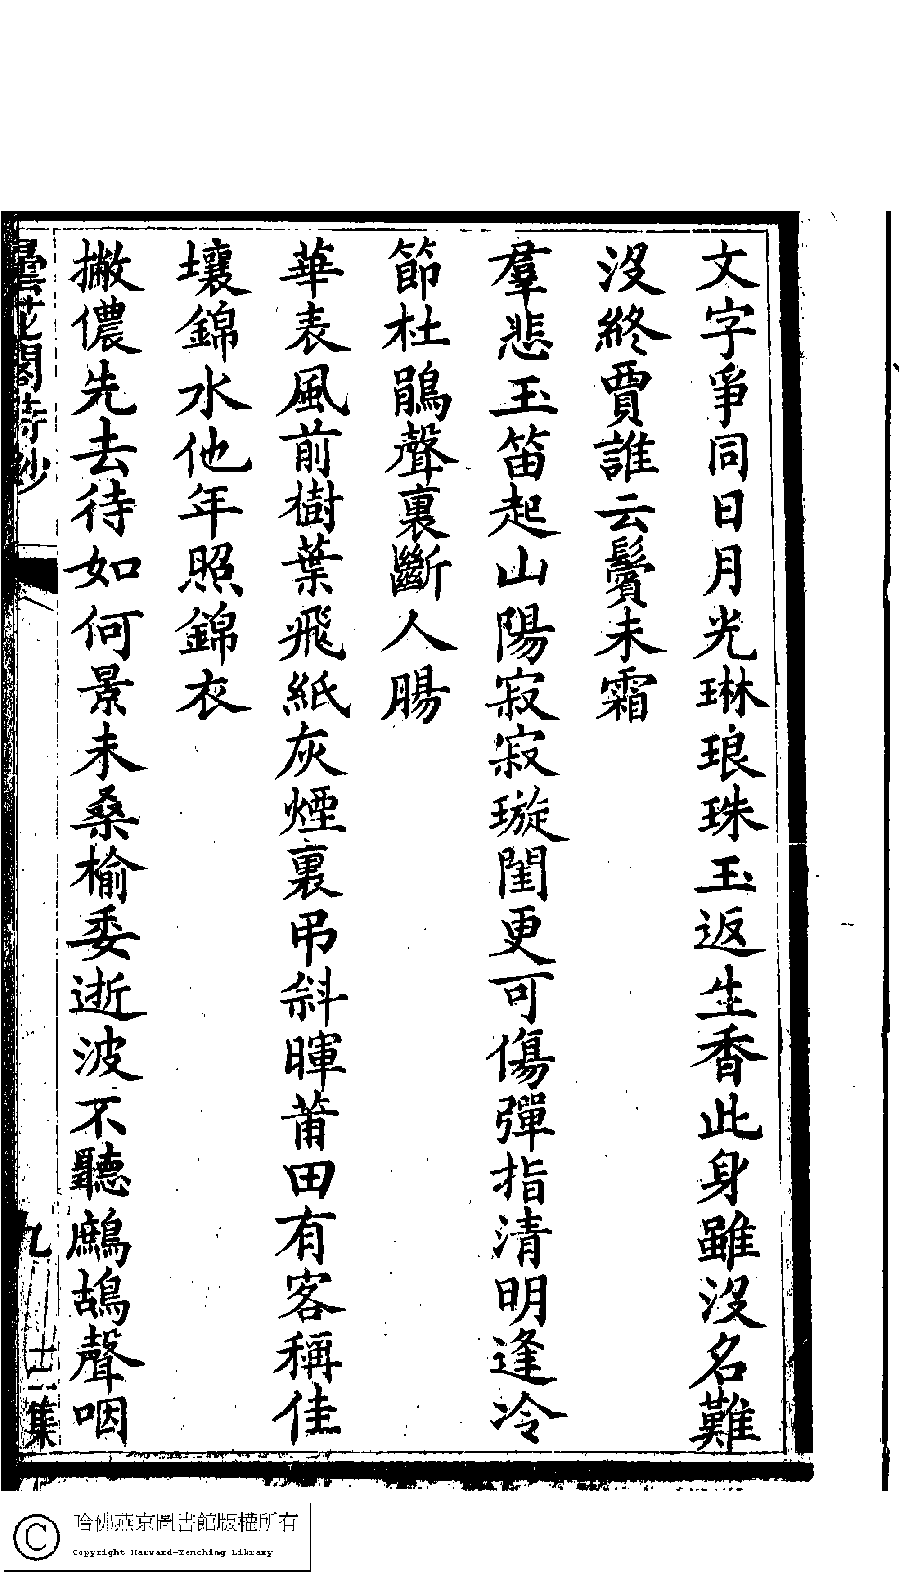 文字爭同日月光琳琅珠玉返生香此身雖沒名難
沒終賈誰云鬢未霜
羣悲玉笛起山陽寂寂璇閨更可傷彈指清明逢冷
節杜鵑聲裏斷人腸
華表風前樹葉飛紙灰煙裏弔斜暉莆田有客稱佳
壤錦水他年照錦衣
撇儂先去待如何景未桑榆委逝波不聽鷓鴣聲咽
曇花閣詩鈔
九
十二集
哈佛燕京圖書館版權所有
Copyright Harvard-Yenching Library